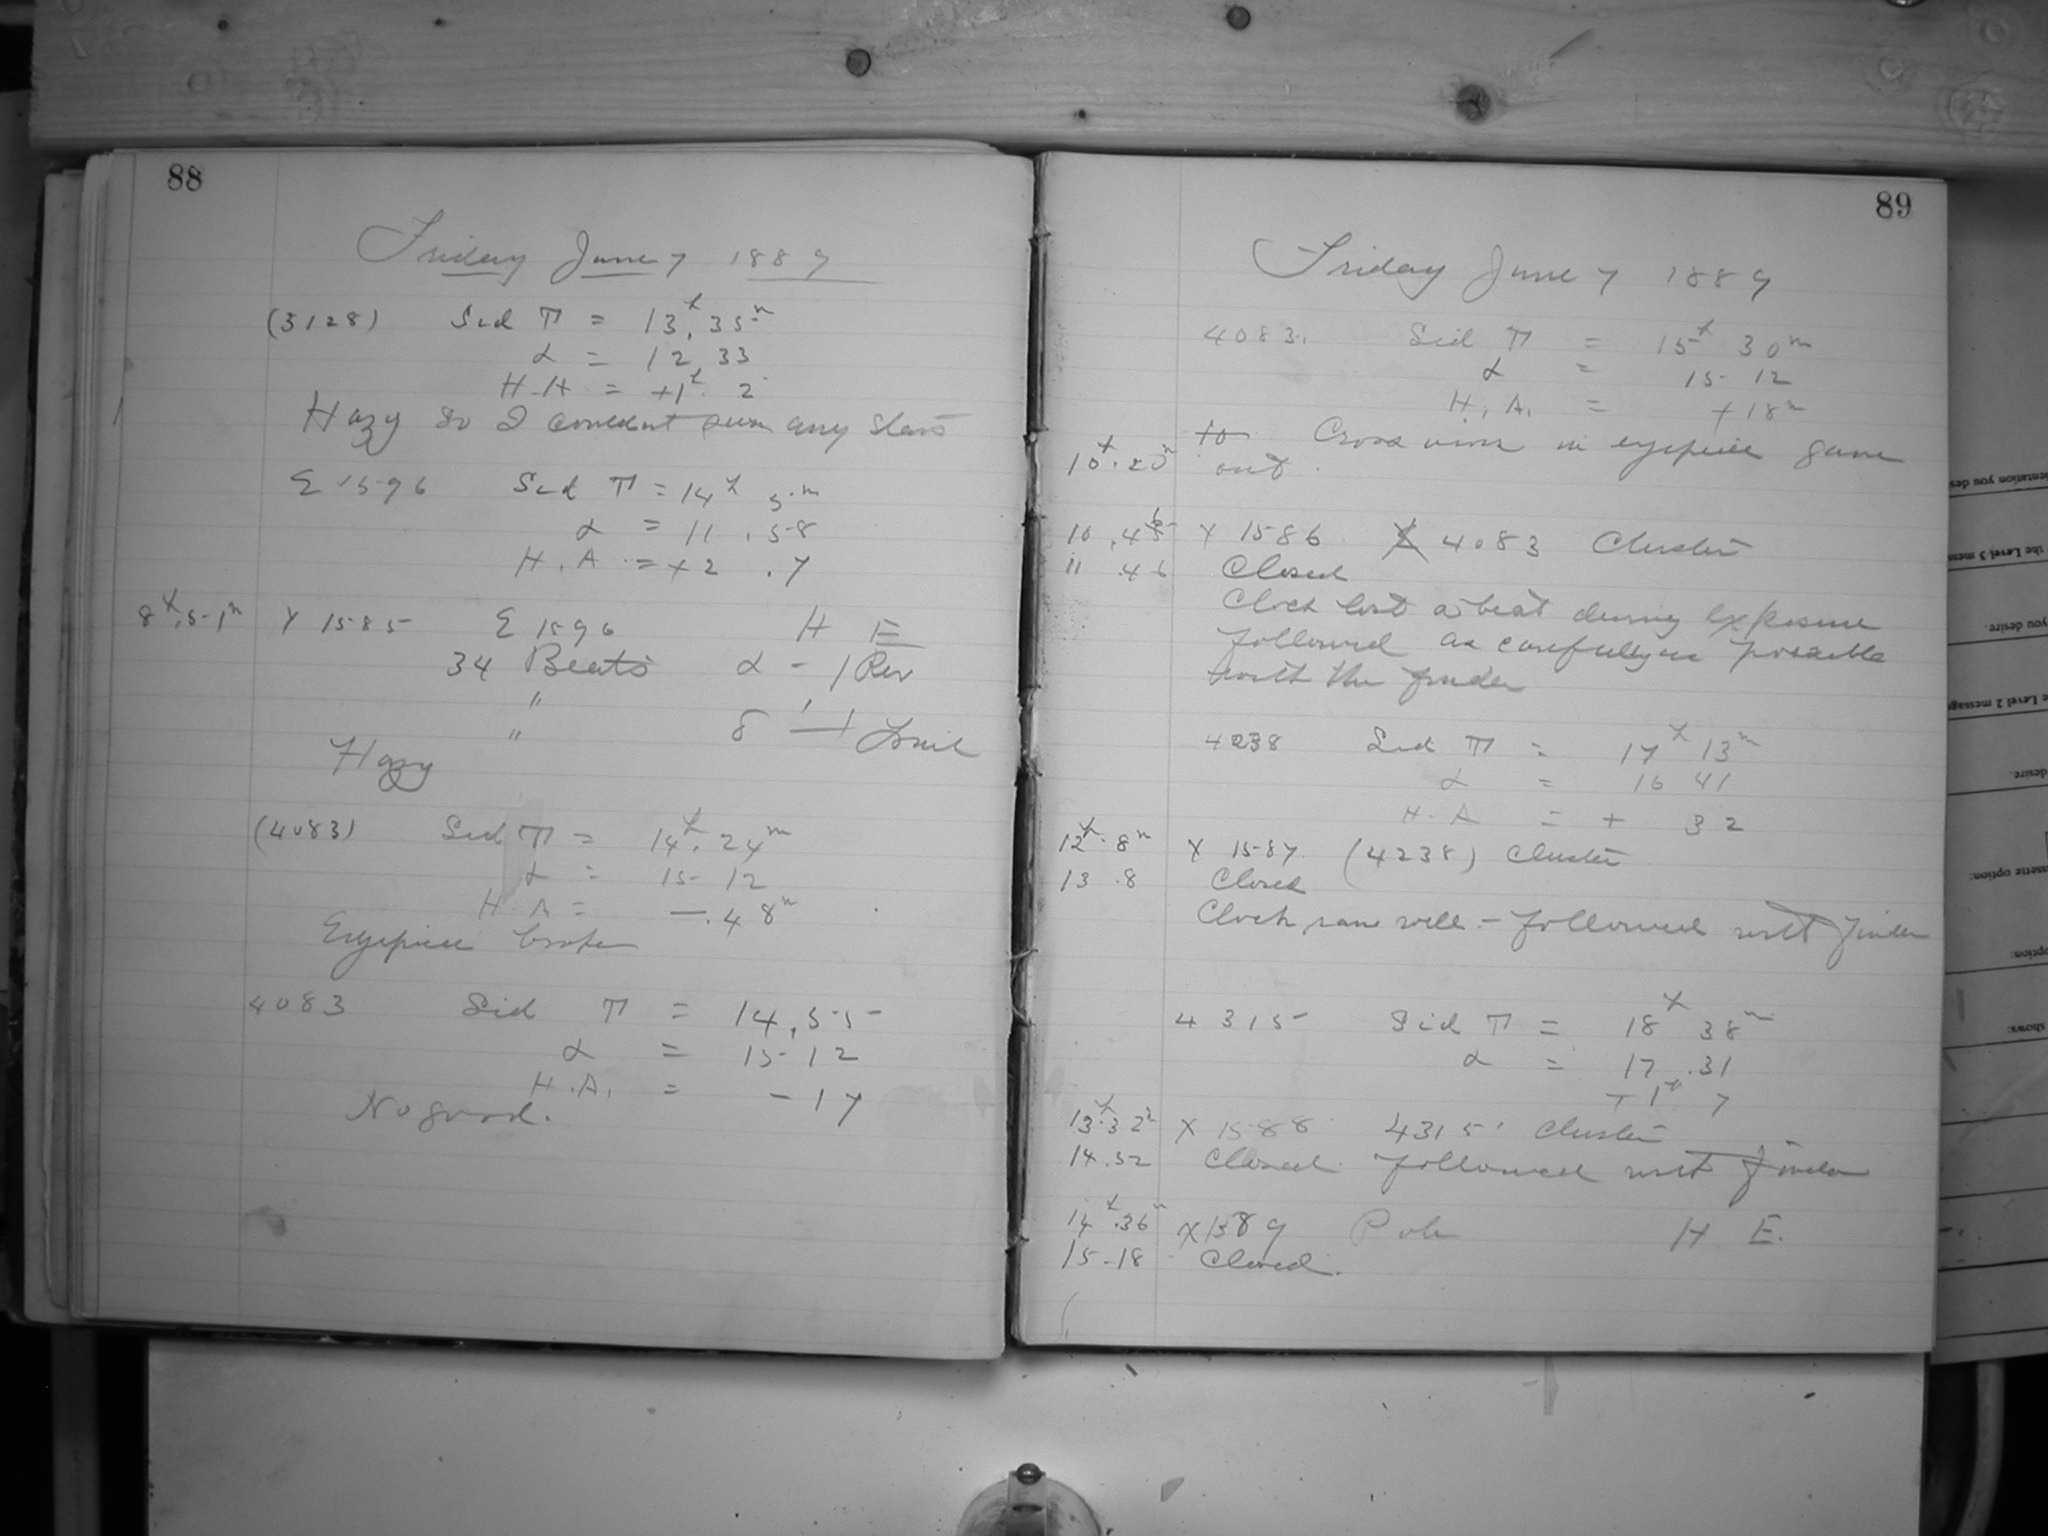 88
Friday June 7 1889
(3128) Sid T = 13h.35m
α = 12 33
H.A = +1h. 2
Hazy so I couldnt see any stars
Σ 1596 Sid T = 14h 5m
α = 11.58
H.A = +2.7
8h.51m X 1585 Σ 1596 H E
34 Beats α - 1 Rev
"
" δ
Hazy
(4083) Sid T = 14h.24m
α = 15 12
H.A = -.48m
Eyepiece broke
4083 Sid T = 14,55
α = 15 12
H.A. = -17
No good.
89
Friday June 7 1889
4083. Sid T = 15h 30m
α = 15 12
H.A. = +18m
to Cross wires in eyepiece gave
10h.20m out.
10.46 X 1586 4083 Cluster
11.46 Closed
Clock lost a beat during exposure
followed as carefully as possible
with the finder
4238 Sid T = 17h 13m
α = 16 41
H.A = + 32
12h.8m X 1587 (4238) Cluster
13.8 Closed
Clock ran well - followed with finder
4315 Sid T = 18h 38m
α = 17.31
+1h 7
13h.32m X 1588 4315 Cluster
14.32 Closed followed with finder
14h.36m X 1589 Pole H E.
15-18 Closed.